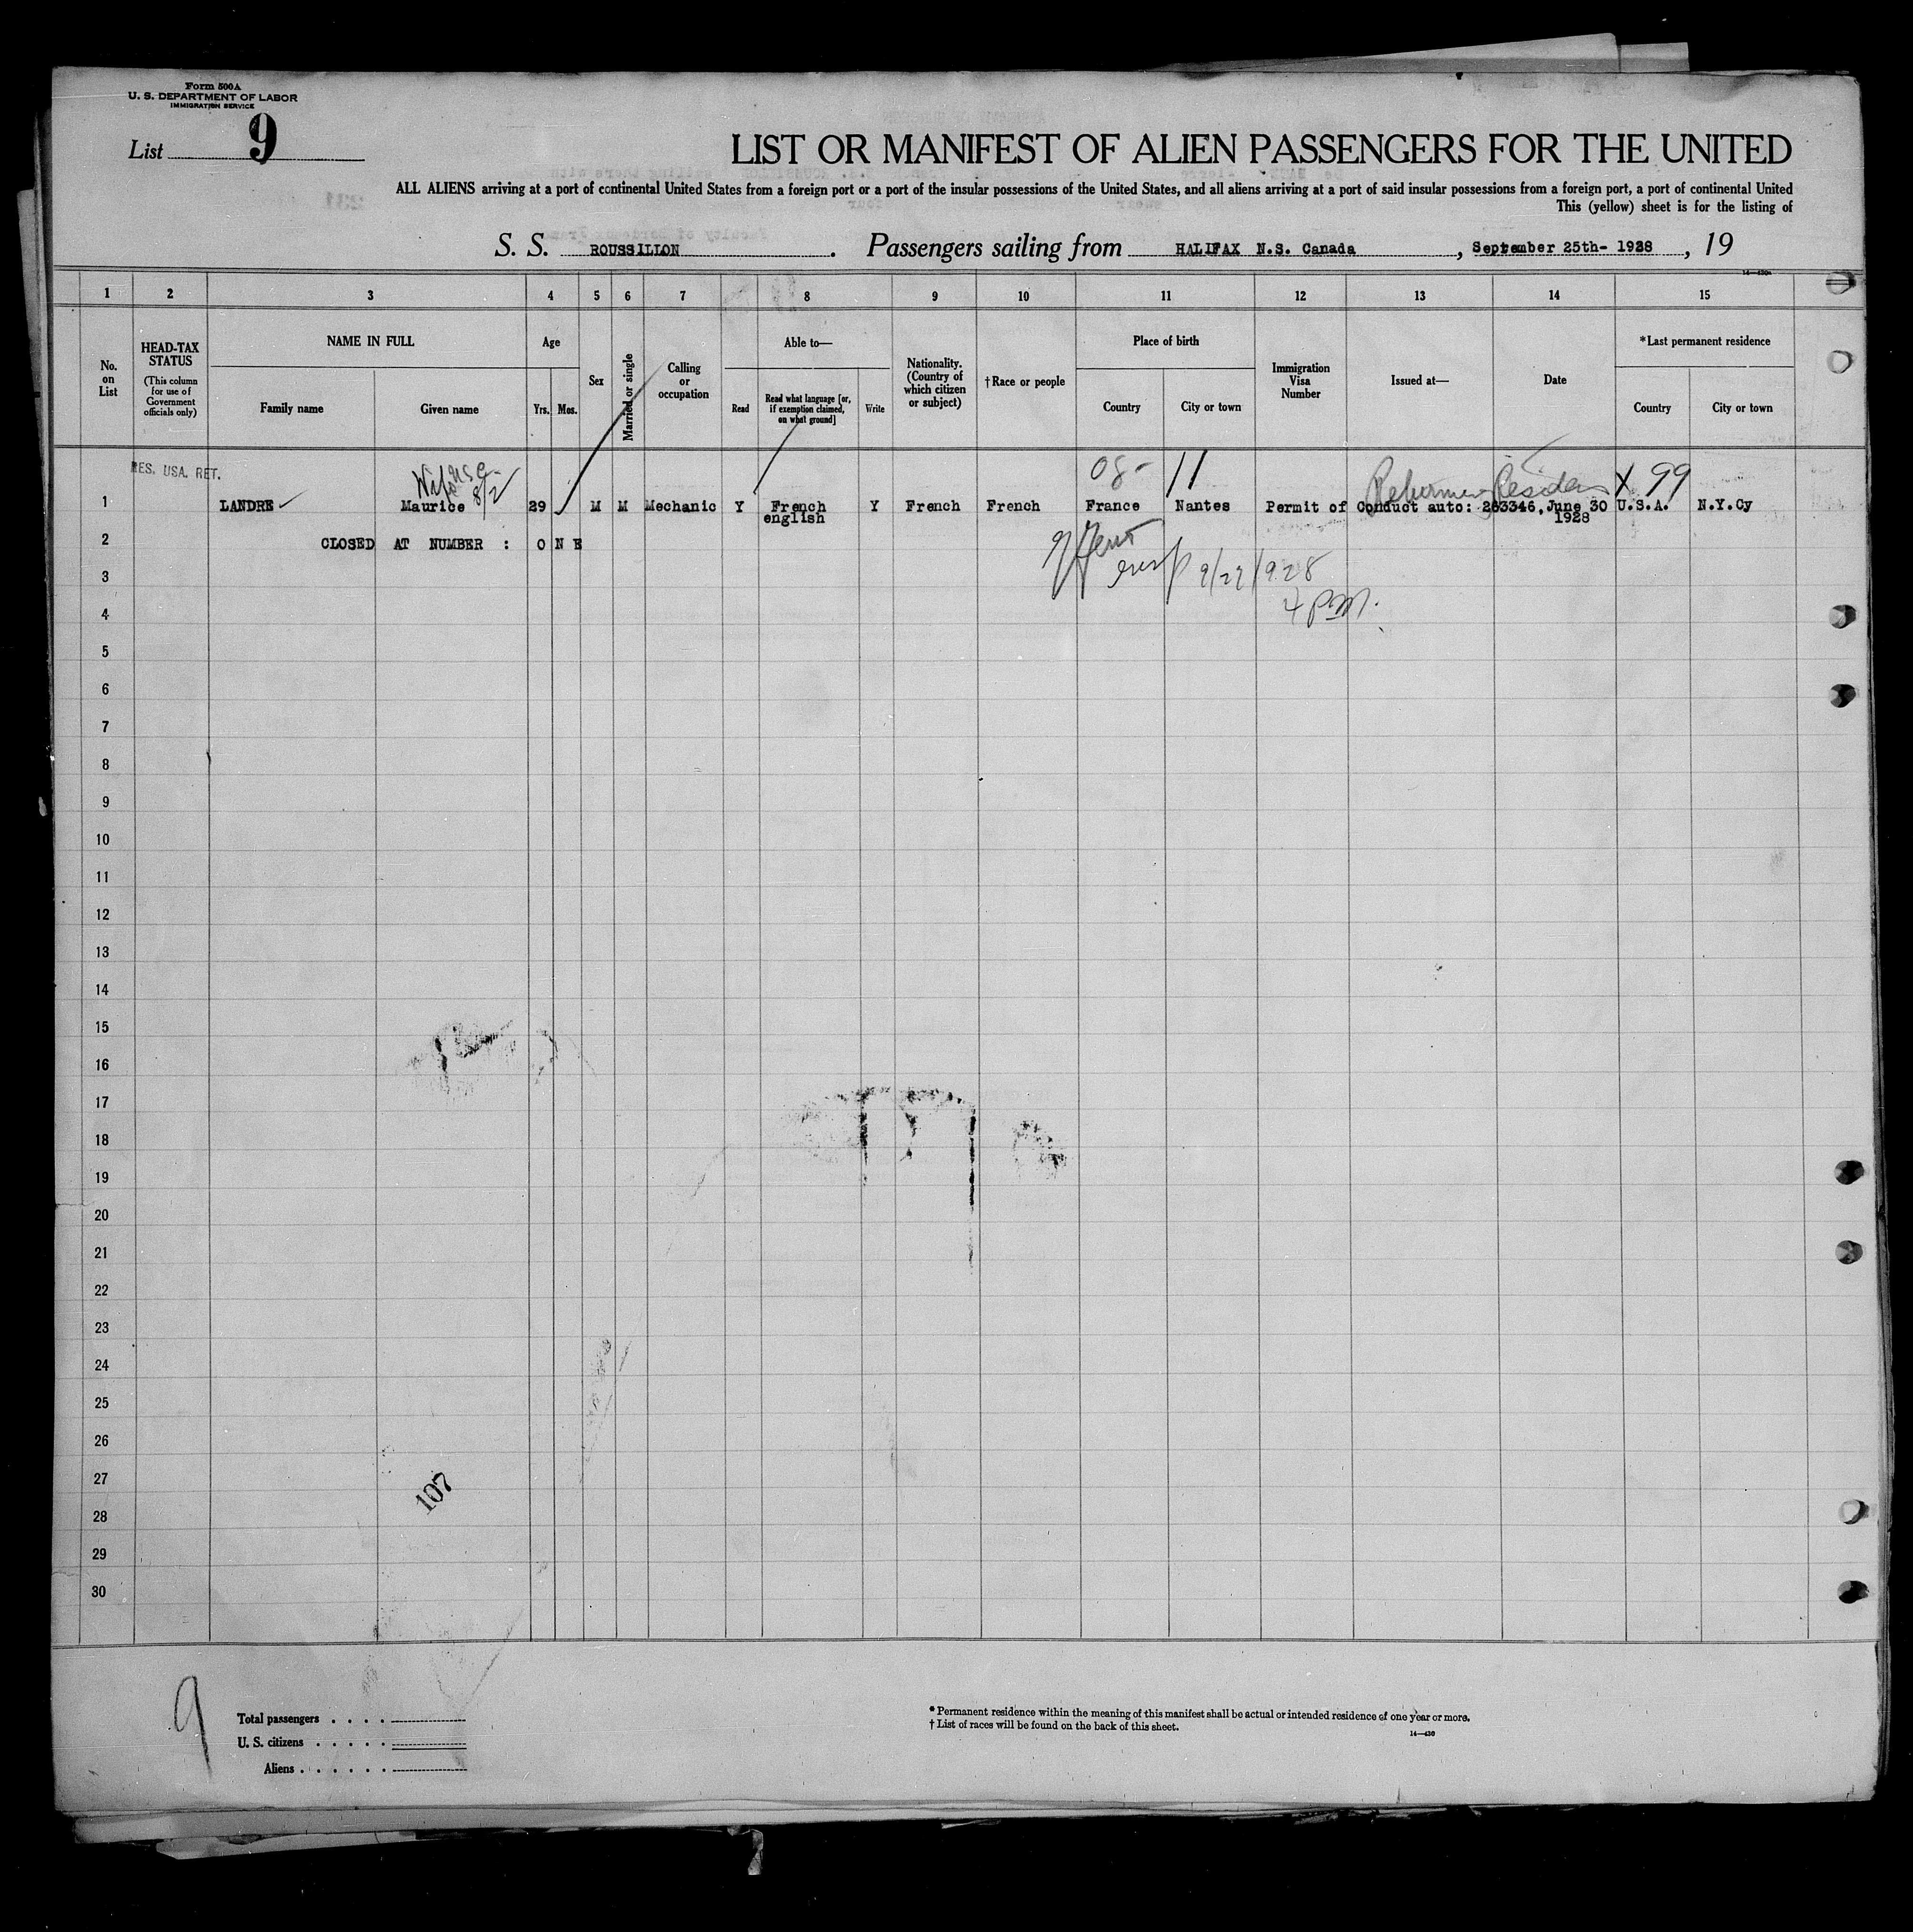 Form 500A
U. S. DEPARTMENT OF LABOR
IMMIGRATION SERVICE
List 9
LIST OR MANIFEST OF ALIEN PASSENGERS FOR THE UNITED
ALL ALIENS arriving at a port of continental United States from a foreign port or a port of the insular possessions of the United States, and all aliens arriving at a port of said insular possessions from a foreign port, a port of continental United
This (yellow) sheet is for the listing of
S. S. ROUSSILLON. Passengers sailing from HALIFAX N.S. Canada, September 25th- 1928, 19
14—430a
1 2 3 4 5 6 7 8 9 10 11 12 13 14 15
No. on List
HEAD-TAX STATUS
(This column for use of Government officials only)
NAME IN FULL
Family name Given name
Age
Yrs. Mos.
Sex
Married or single
Calling or occupation
Able to—
Read
Read what language [or, if exemption claimed, on what ground]
Write
Nationality. (Country of which citizen or subject)
†Race or people
Place of birth
Country City or town
Immigration Visa Number
Issued at—
Date
*Last permanent residence
Country City or town
RES. USA. RET.
08- 11 X 99
8/2
1 LANDRE Maurice 29 M M Mechanic Y French Y French French France Nantes Permit of Conduct auto: 263346, June 30 U.S.A. N.Y.Cy
english 1928
2 CLOSED AT NUMBER : O N E
3
9/27/928
4
4 PM.
5
6
7
8
9
10
11
12
13
14
15
16
17
18
19
20
21
22
23
24
25
26
27
107
28
29
30
9
Total passengers . . . .
U. S. citizens . . . . .
Aliens . . . . . .
* Permanent residence within the meaning of this manifest shall be actual or intended residence of one year or more.
† List of races will be found on the back of this sheet.
14—430